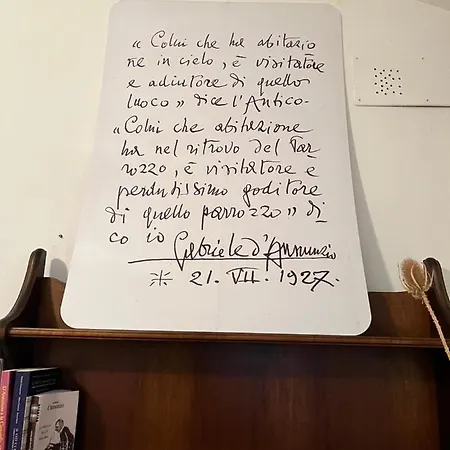 « Colui che ha abitazio
ne in cielo, è visitatore
e adiutore di quello
luoco » dice l'Antico-
« Colui che abitazione
ha nel ritrovo del Par
rozzo, è visitatore e
perdutissimo goditore
di quello parrozzo » di
co io Gabriele d'Annunzio
21. VII. 1927.